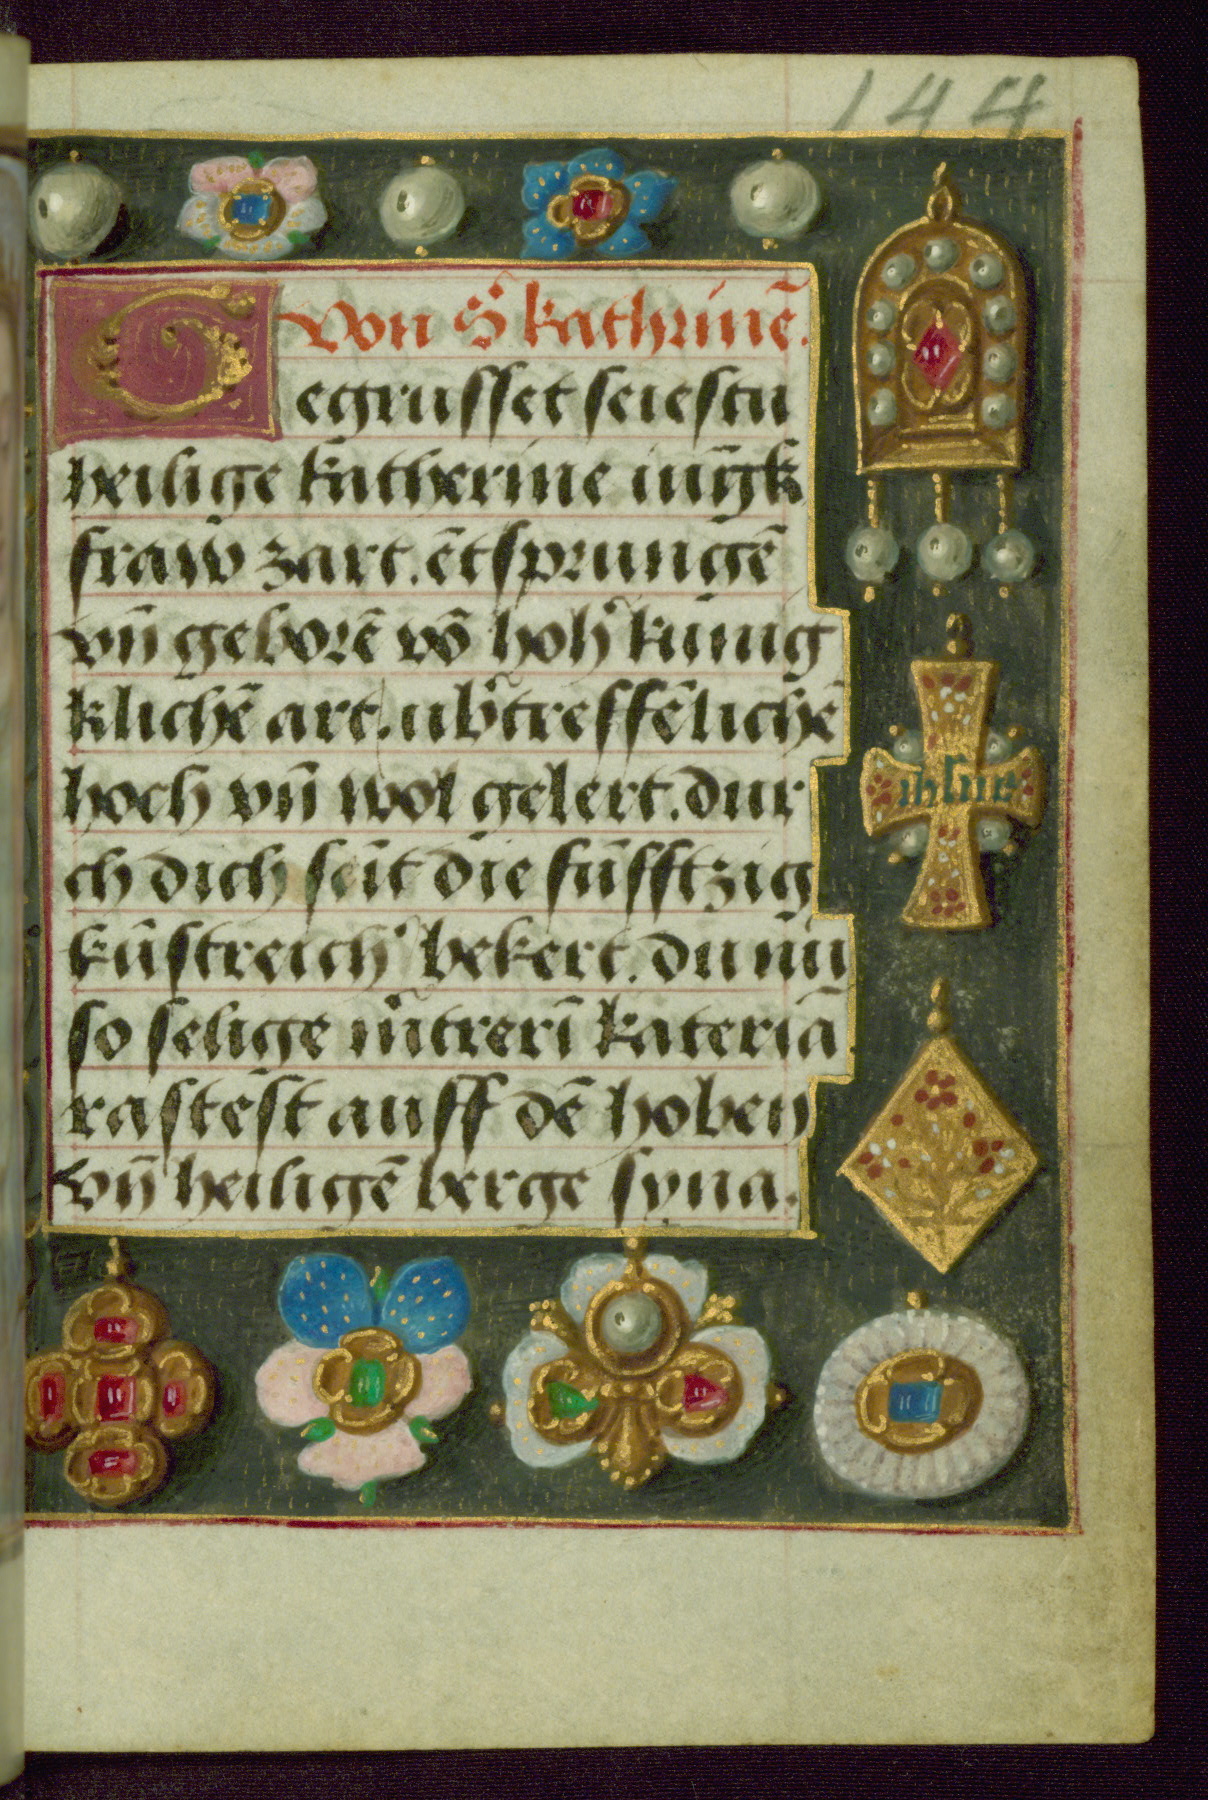 144
Von S. kathrinē.
Gegrusset seiestu
heilige katherine iūgk
fraw zart. ētsprungē
vn̄ geborē vō hoh' kunig
klichē art. ub'treffēlichē
hoch vn̄ wol gelert. dur
ch dich seīt die fūfftzig
kūstreich' bekert. du nū
so selige m̄treri kateriā
rastēst auff dē hohen
vn̄ heiligē berge syna.